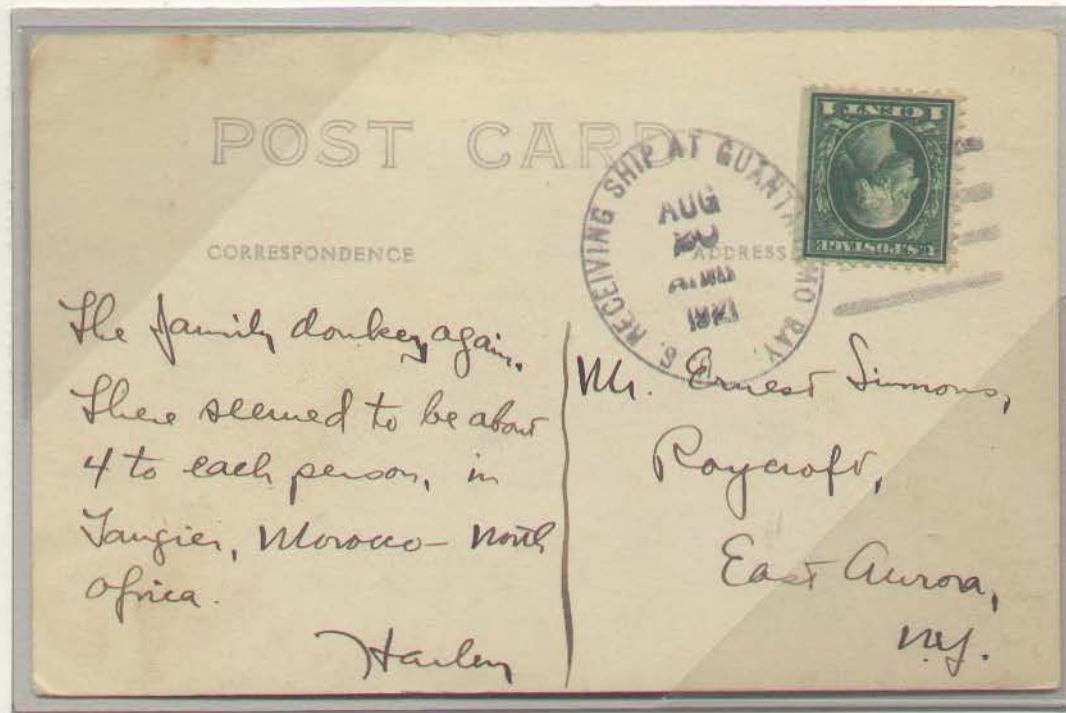 POST CARD
CORRESPONDENCE
ADDRESS
S. RECEIVING SHIP AT GUANTANAMO BAY,
AUG
20
A.M.
1921
1 CENT 1
U.S. POSTAGE
The family donkey again.
There seemed to be about
4 to each person, in
Tangier, Morocco - North
Africa.
Harley
Mr. Ernest Simmons,
Roycroft,
East Aurora,
N.Y.